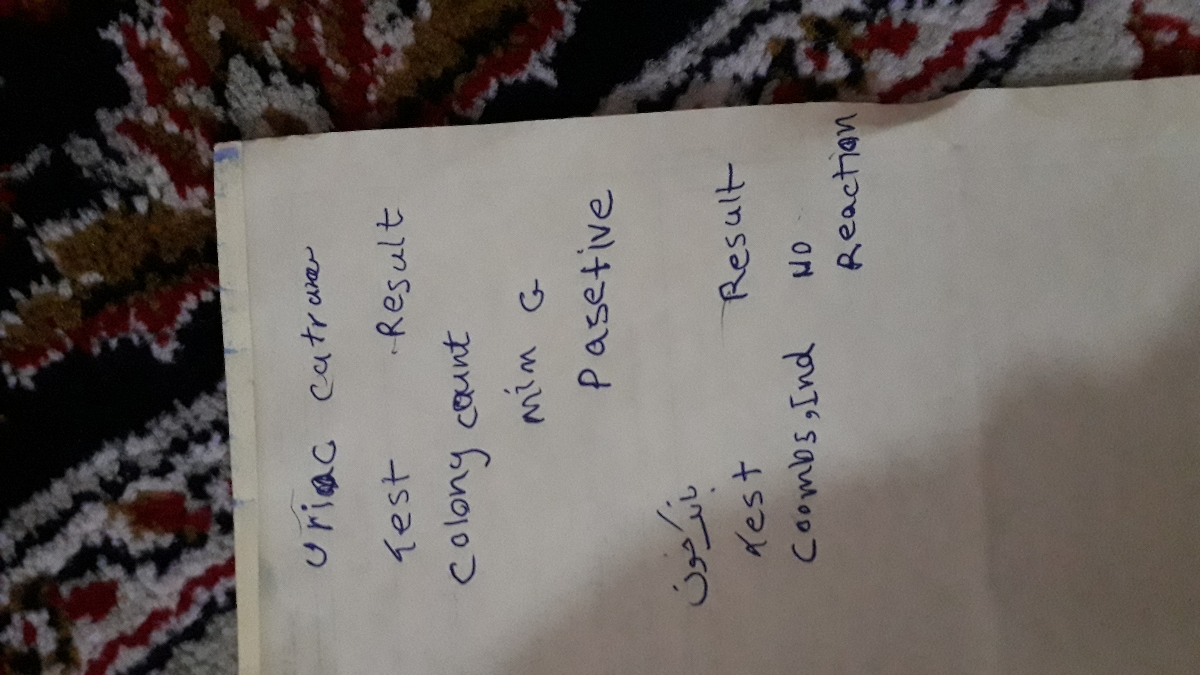 Uriac catrure
Test Result
Colony count
min G
Pasetive
بانک خون
Test Result
Coombs, Ind No
Reaction